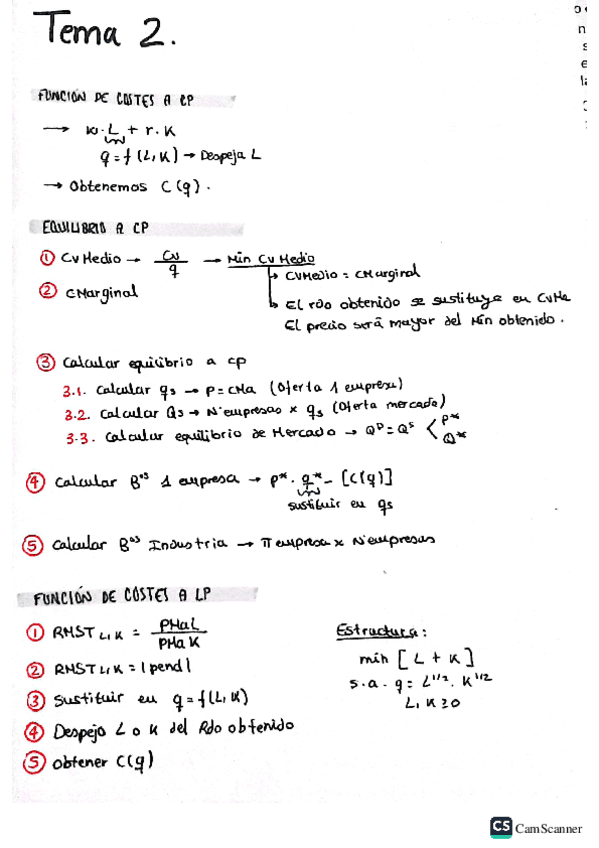 Tema 2.
FUNCIÓN DE COSTES A CP
→ w.L + r.K
q = f (L, K) → Despeja L
→ Obtenemos C(q).
EQUILIBRIO A CP
① CVMedio → CV/q → Min CV Medio
↳ CVMedio = CMarginal
② CMarginal
↳ El rdo obtenido se sustituye en CVMe
El precio será mayor del Min obtenido.
③ Calcular equilibrio a cp
3.1. Calcular qs → P = CMa (Oferta 1 empresa)
3.2. Calcular Qs → Nºempresas x qs (Oferta mercado)
3.3. Calcular equilibrio de Mercado → Qᴰ = Qˢ < P* Q*
④ Calcular Bºˢ 1 empresa → p*. q* - [C(q)]
sustituir en qs
⑤ Calcular Bºˢ Industria → π empresa x Nºempresas
FUNCIÓN DE COSTES A LP
① RMST L,K = PMaL / PMaK
② RMST L,K = |pend|
③ Sustituir en q = f(L, K)
④ Despejo L o K del Rdo obtenido
⑤ obtener C(q)
Estructura:
min [L + K]
s.a. q = L^1/2. K^1/2
L, K ≥ 0
CS CamScanner